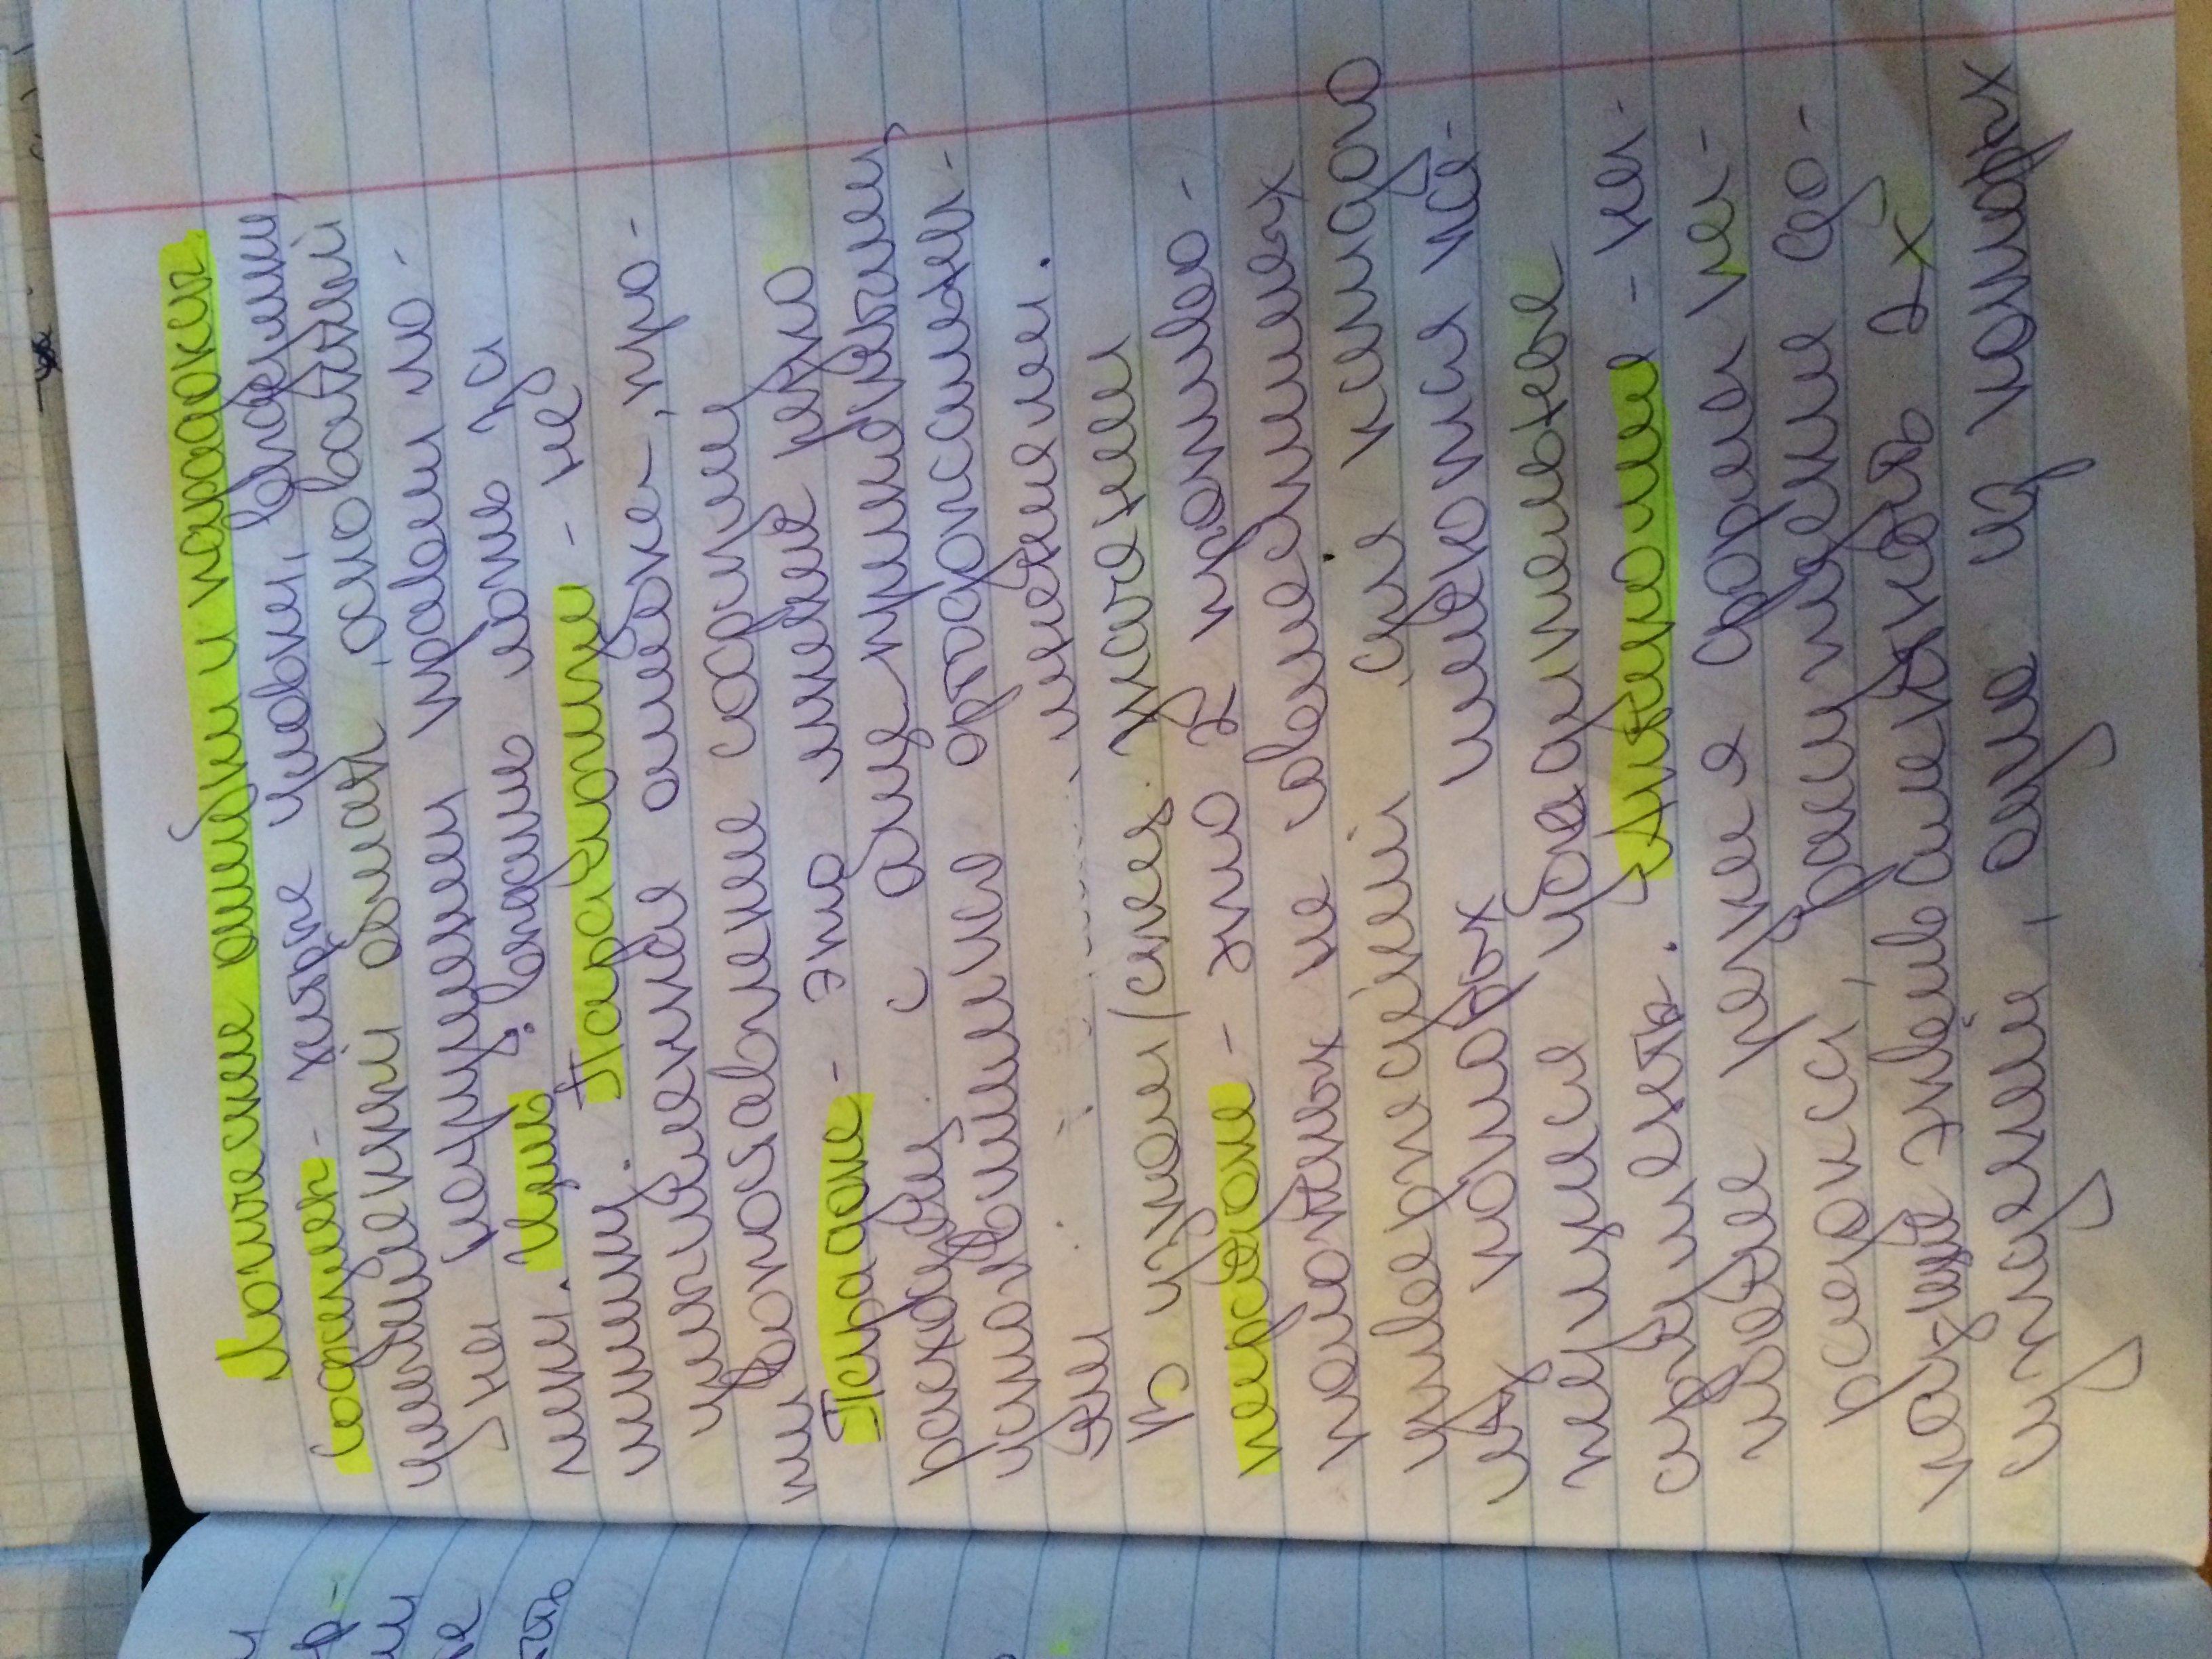 Логические ошибки и парадоксы.
Софизмы - хитрые уловки, выдумки,
умышленный обман, основанный
на нарушении правил ло-
гики. Цель: выдать ложь за
истину. Паралогизм - не
умышленная ошибка, про-
тивопоставление софизму
Парадокс - это мнение резко
расходящ. с общепринятыми,
устоявшимися ортодоксальны-
ми мнениями.
В узком/спец. значении
парадокс - это 2 противо-
положных не совместимых
утверждений для каждого
из которых имеются ка-
жущиеся убедительные
аргументы. Антиномия - на-
иболее резкая форма па-
радокса, рассуждение до-
каз-щие эквивалентность 2х
суждений, одно из которых